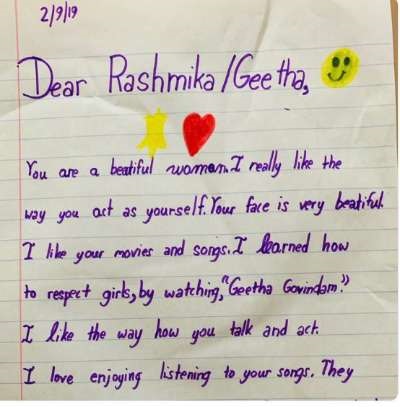 2/9/19
Dear Rashmika/Geetha,
You are a beatiful woman. I really like the
way you act as yourself. Your face is very beatiful.
I like your movies and songs. I learned how
to respect girls, by watching, "Geetha Govindam."
I like the way how you talk and act.
I love enjoying listening to your songs. They